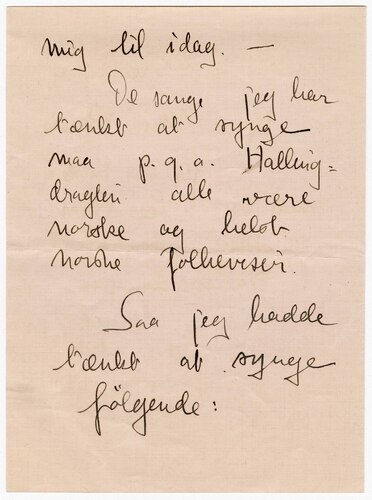 mig til idag. —
De sange jeg har
tænkt at synge
maa p. g. a. Halling=
dragten alle være
norske og helst
norske folkeviser.
Saa jeg hadde
tænkt at synge
følgende: